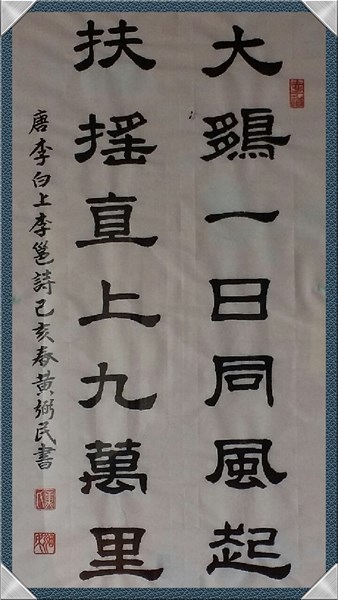 大鵬一日同風起
扶搖直上九萬里
唐李白上李邕詩己亥春黃弼民書